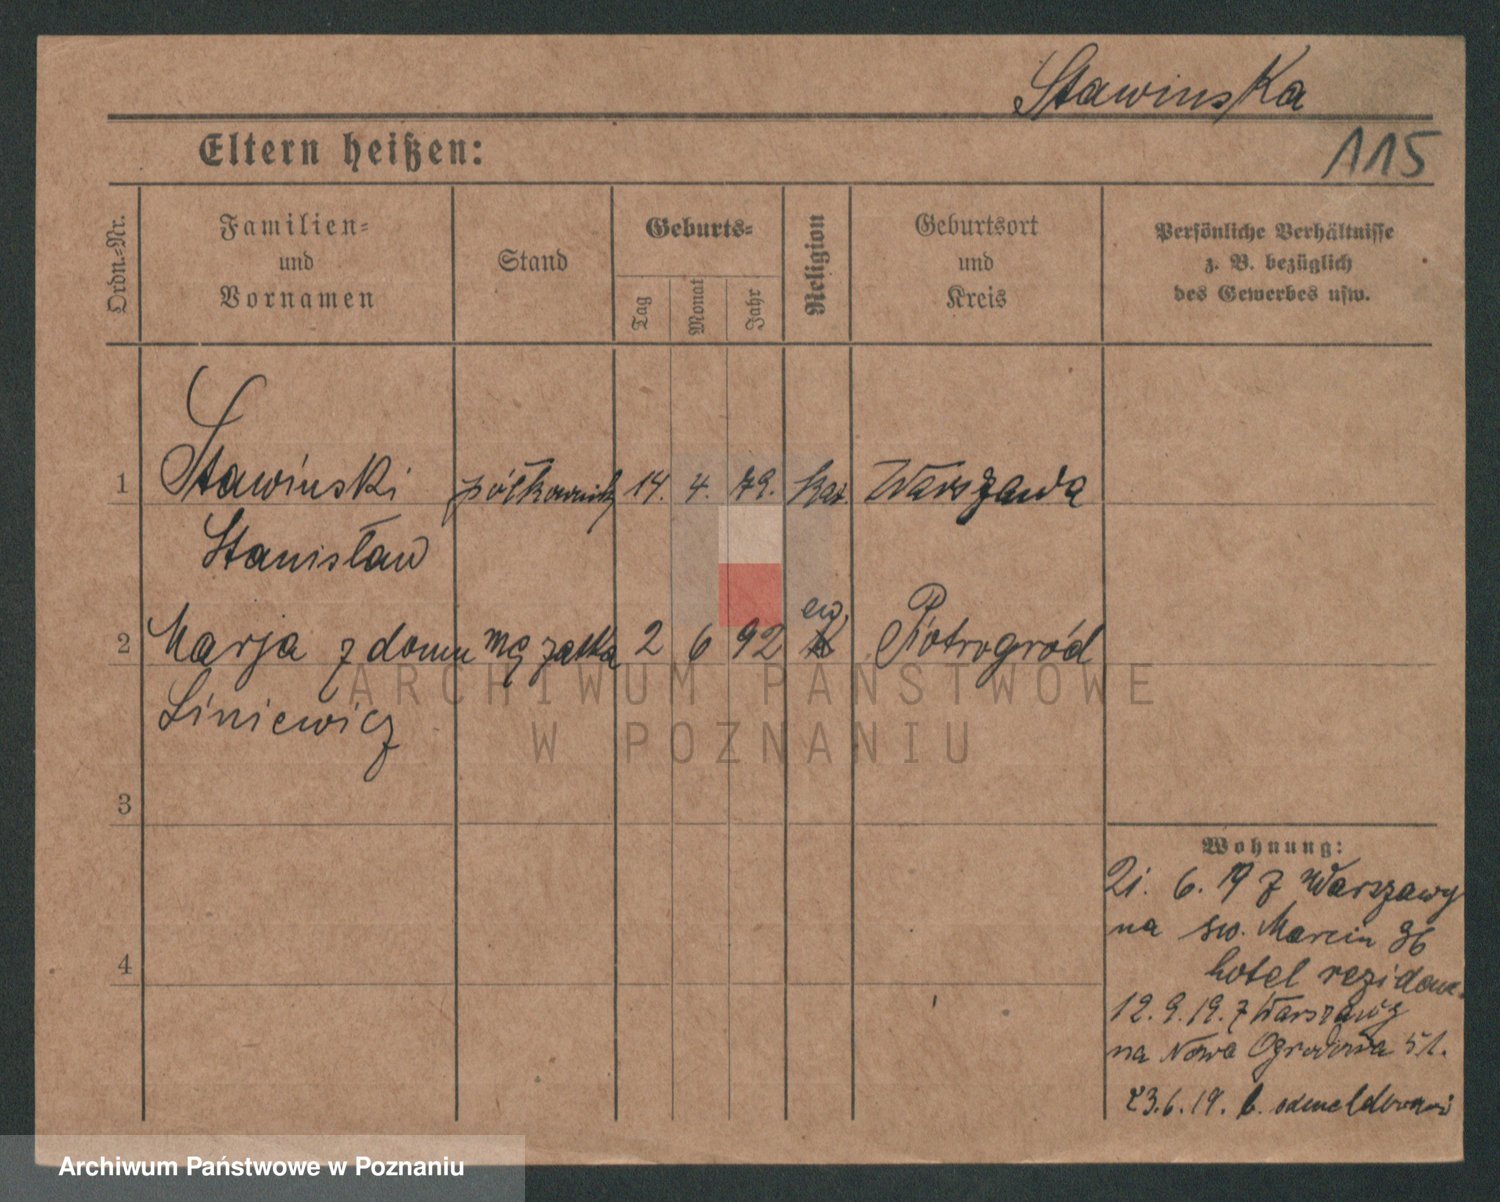 Stawinska
115
Eltern heißen:
Ordn.=Nr.
Familien=
und
Vornamen
Stand
Geburts=
Tag
Monat
Jahr
Religion
Geburtsort
und
Kreis
Persönliche Verhältnisse
z. B. bezüglich
des Gewerbes usw.
1 Stawinski półkownik 14. 4. 79. kat. Warszawa
Stanisław
2 Marja z domu mężatka 2 6 92 ew Piotrogród
Liniewicz
3
4
Wohnung:
21. 6. 19 z Warszawy
na św. Marcin 36
hotel
12. 9. 19. z Warszawy
na Nowa Ogrodowa 51.
23. 6. 19.
ARCHIWUM PAŃSTWOWE
W POZNANIU
Archiwum Państwowe w Poznaniu